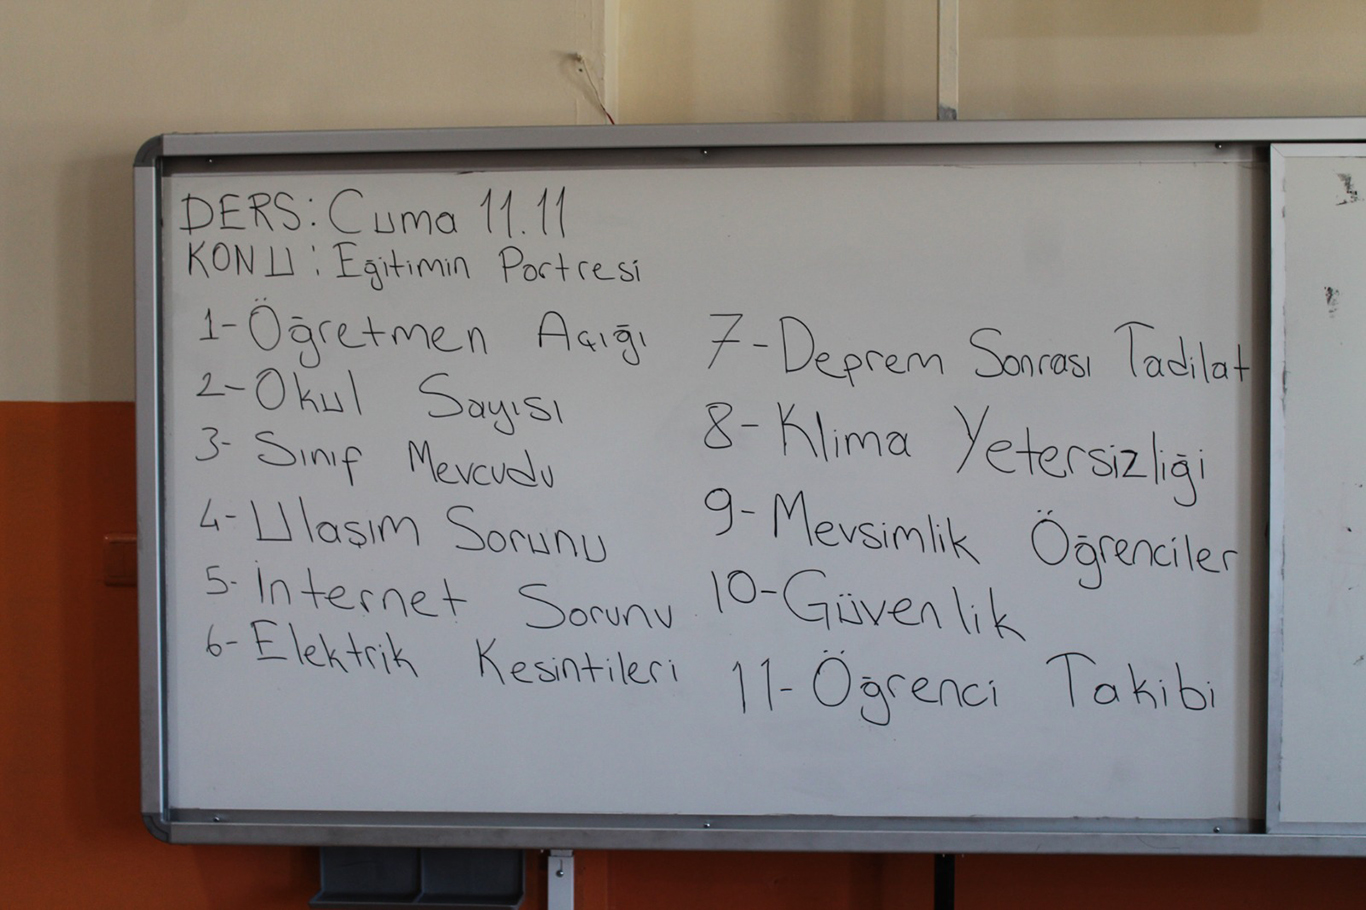 DERS: Cuma 11.11
KONU: Eğitimin Portresi
1- Öğretmen Açığı
2- Okul Sayısı
3- Sınıf Mevcudu
4- Ulaşım Sorunu
5- İnternet Sorunu
6- Elektrik Kesintileri
7- Deprem Sonrası Tadilat
8- Klima Yetersizliği
9- Mevsimlik Öğrenciler
10- Güvenlik
11- Öğrenci Takibi